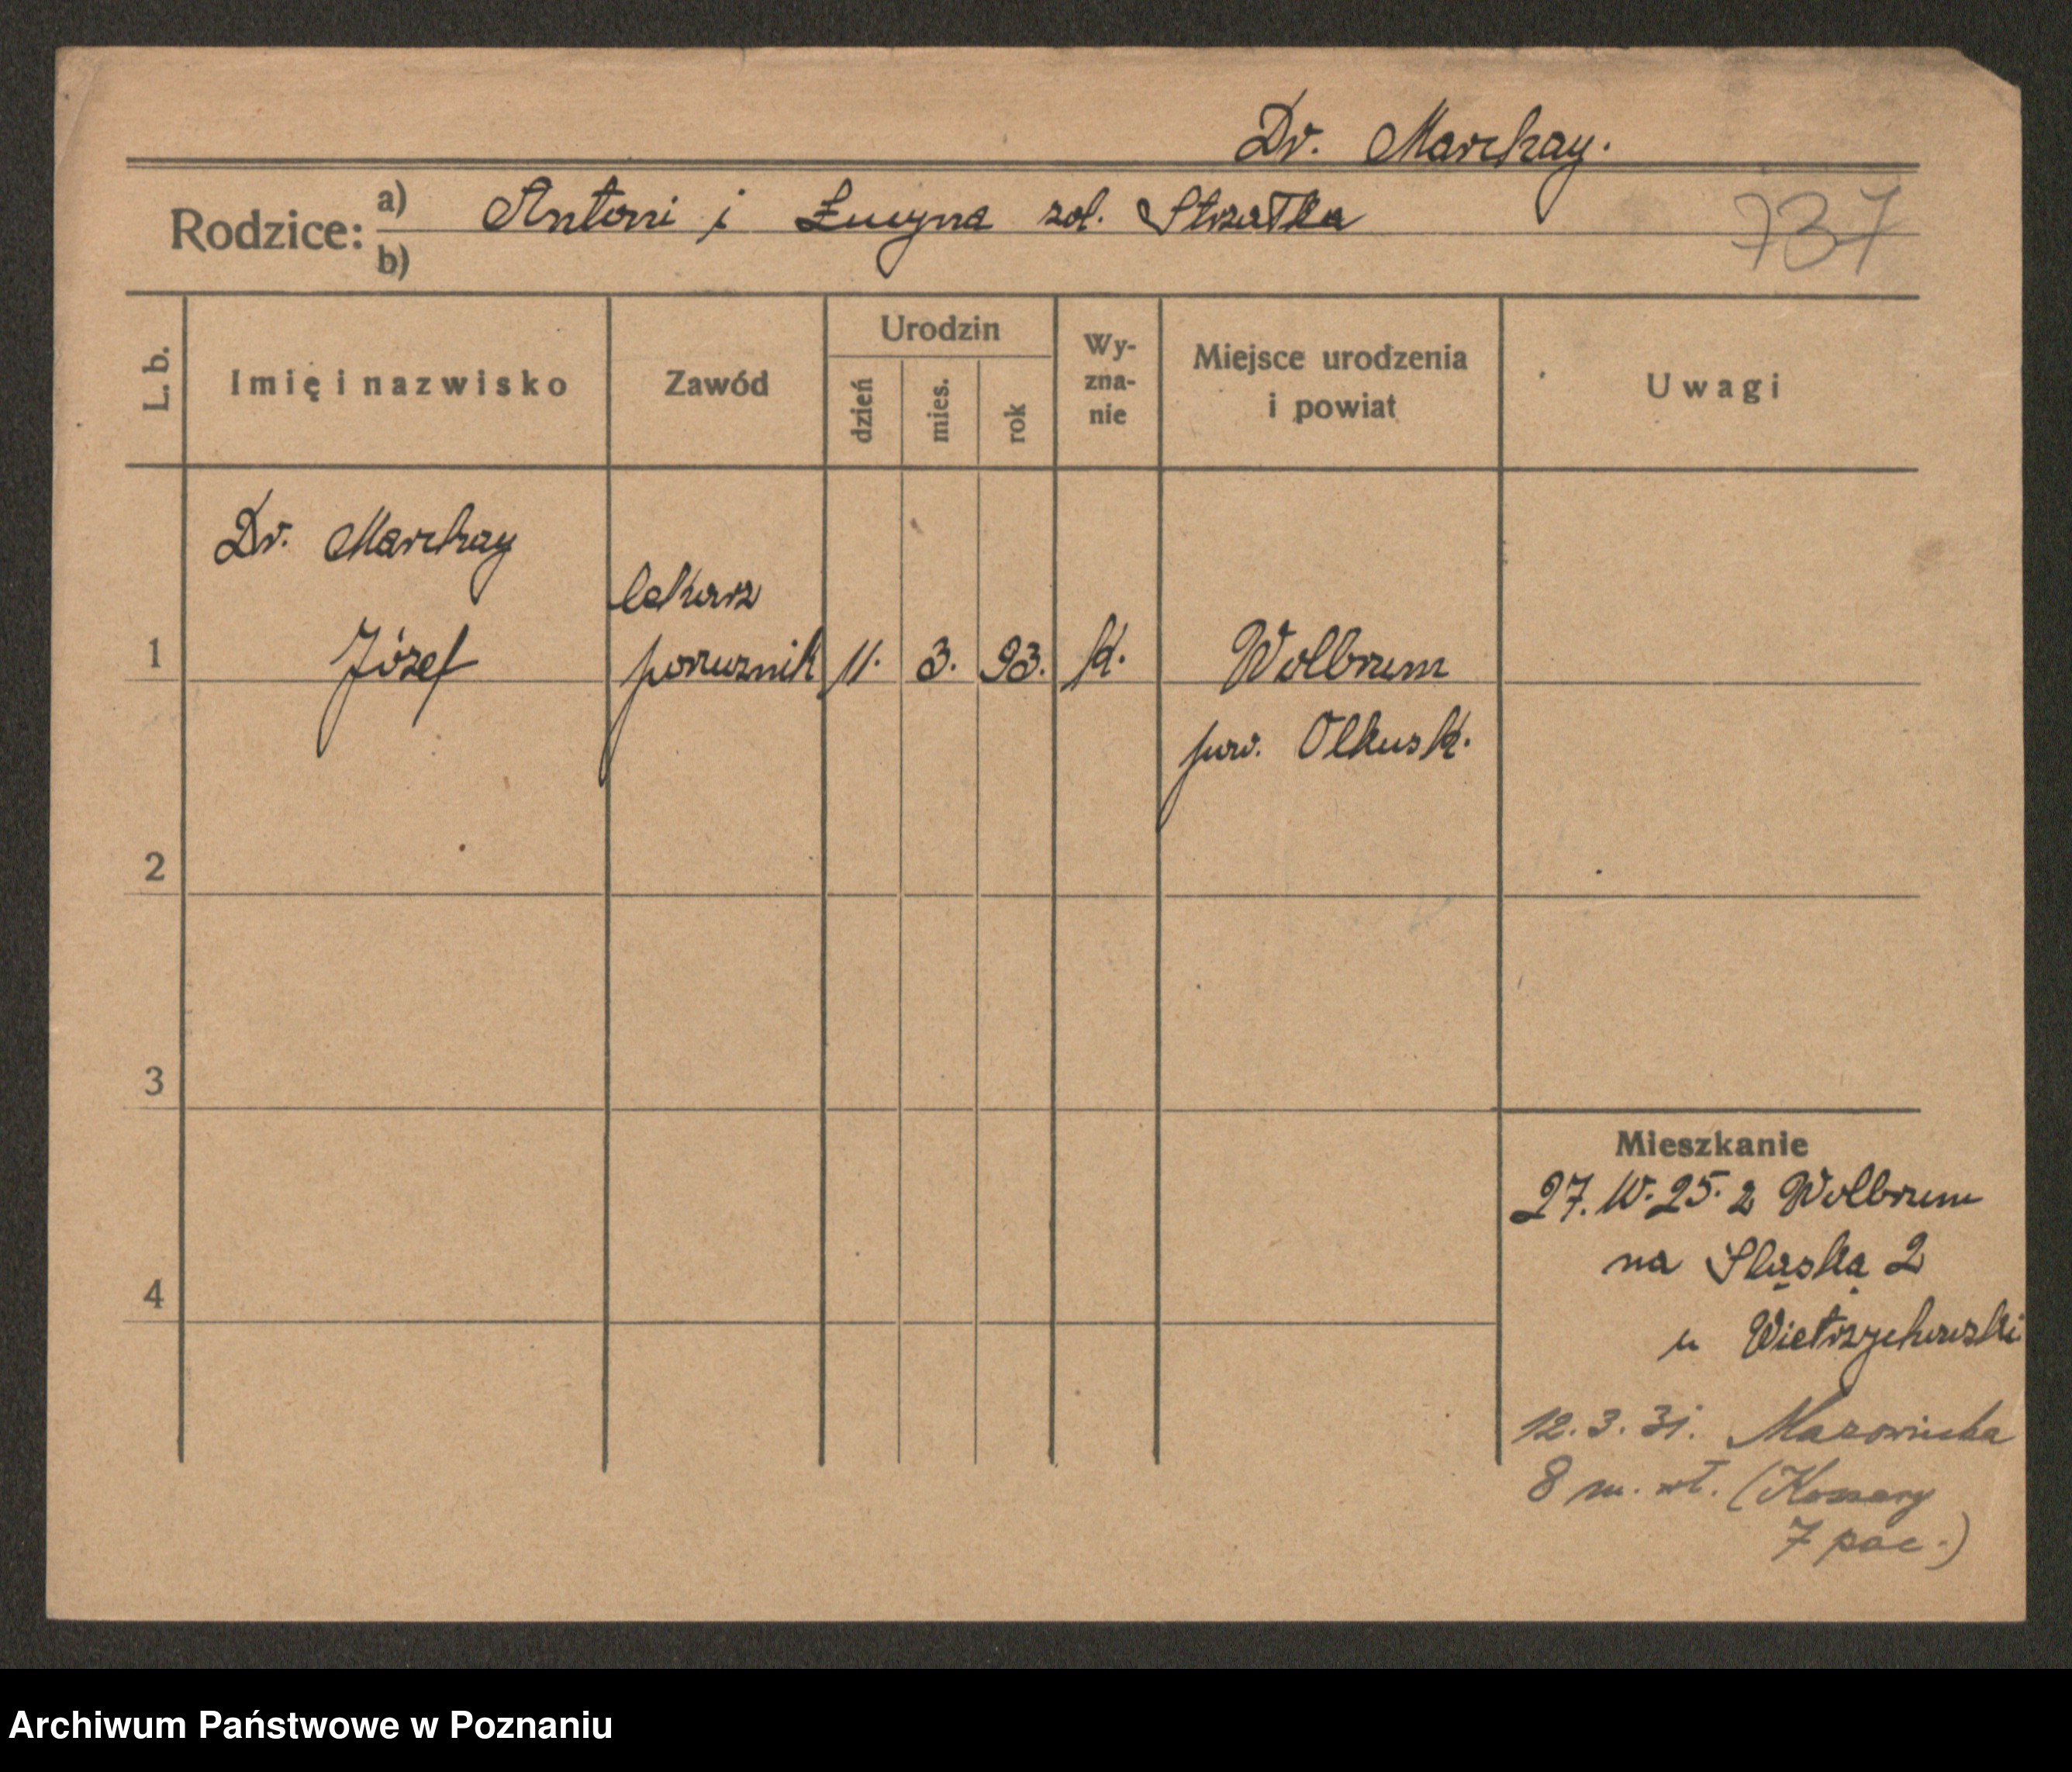 Dr. Marchay.
Rodzice: a) Antoni i Łucyna zol. Strzałka
b)
737
L. b.
Imię i nazwisko
Zawód
Urodzin
dzień
mies.
rok
Wy-
zna-
nie
Miejsce urodzenia
i powiat
Uwagi
Dr. Marchay
lekarz
1 Józef porucznik 11. 3. 93. k. Wolbrom
pow. Olkusk.
2
3
4
Mieszkanie
27. IV. 25. z Wolbrom
na Śląską 2
u Wietrzychowski
12. 3. 31. Mazowiecka
8 m. wł. (Koszary
7 pac.)
Archiwum Państwowe w Poznaniu